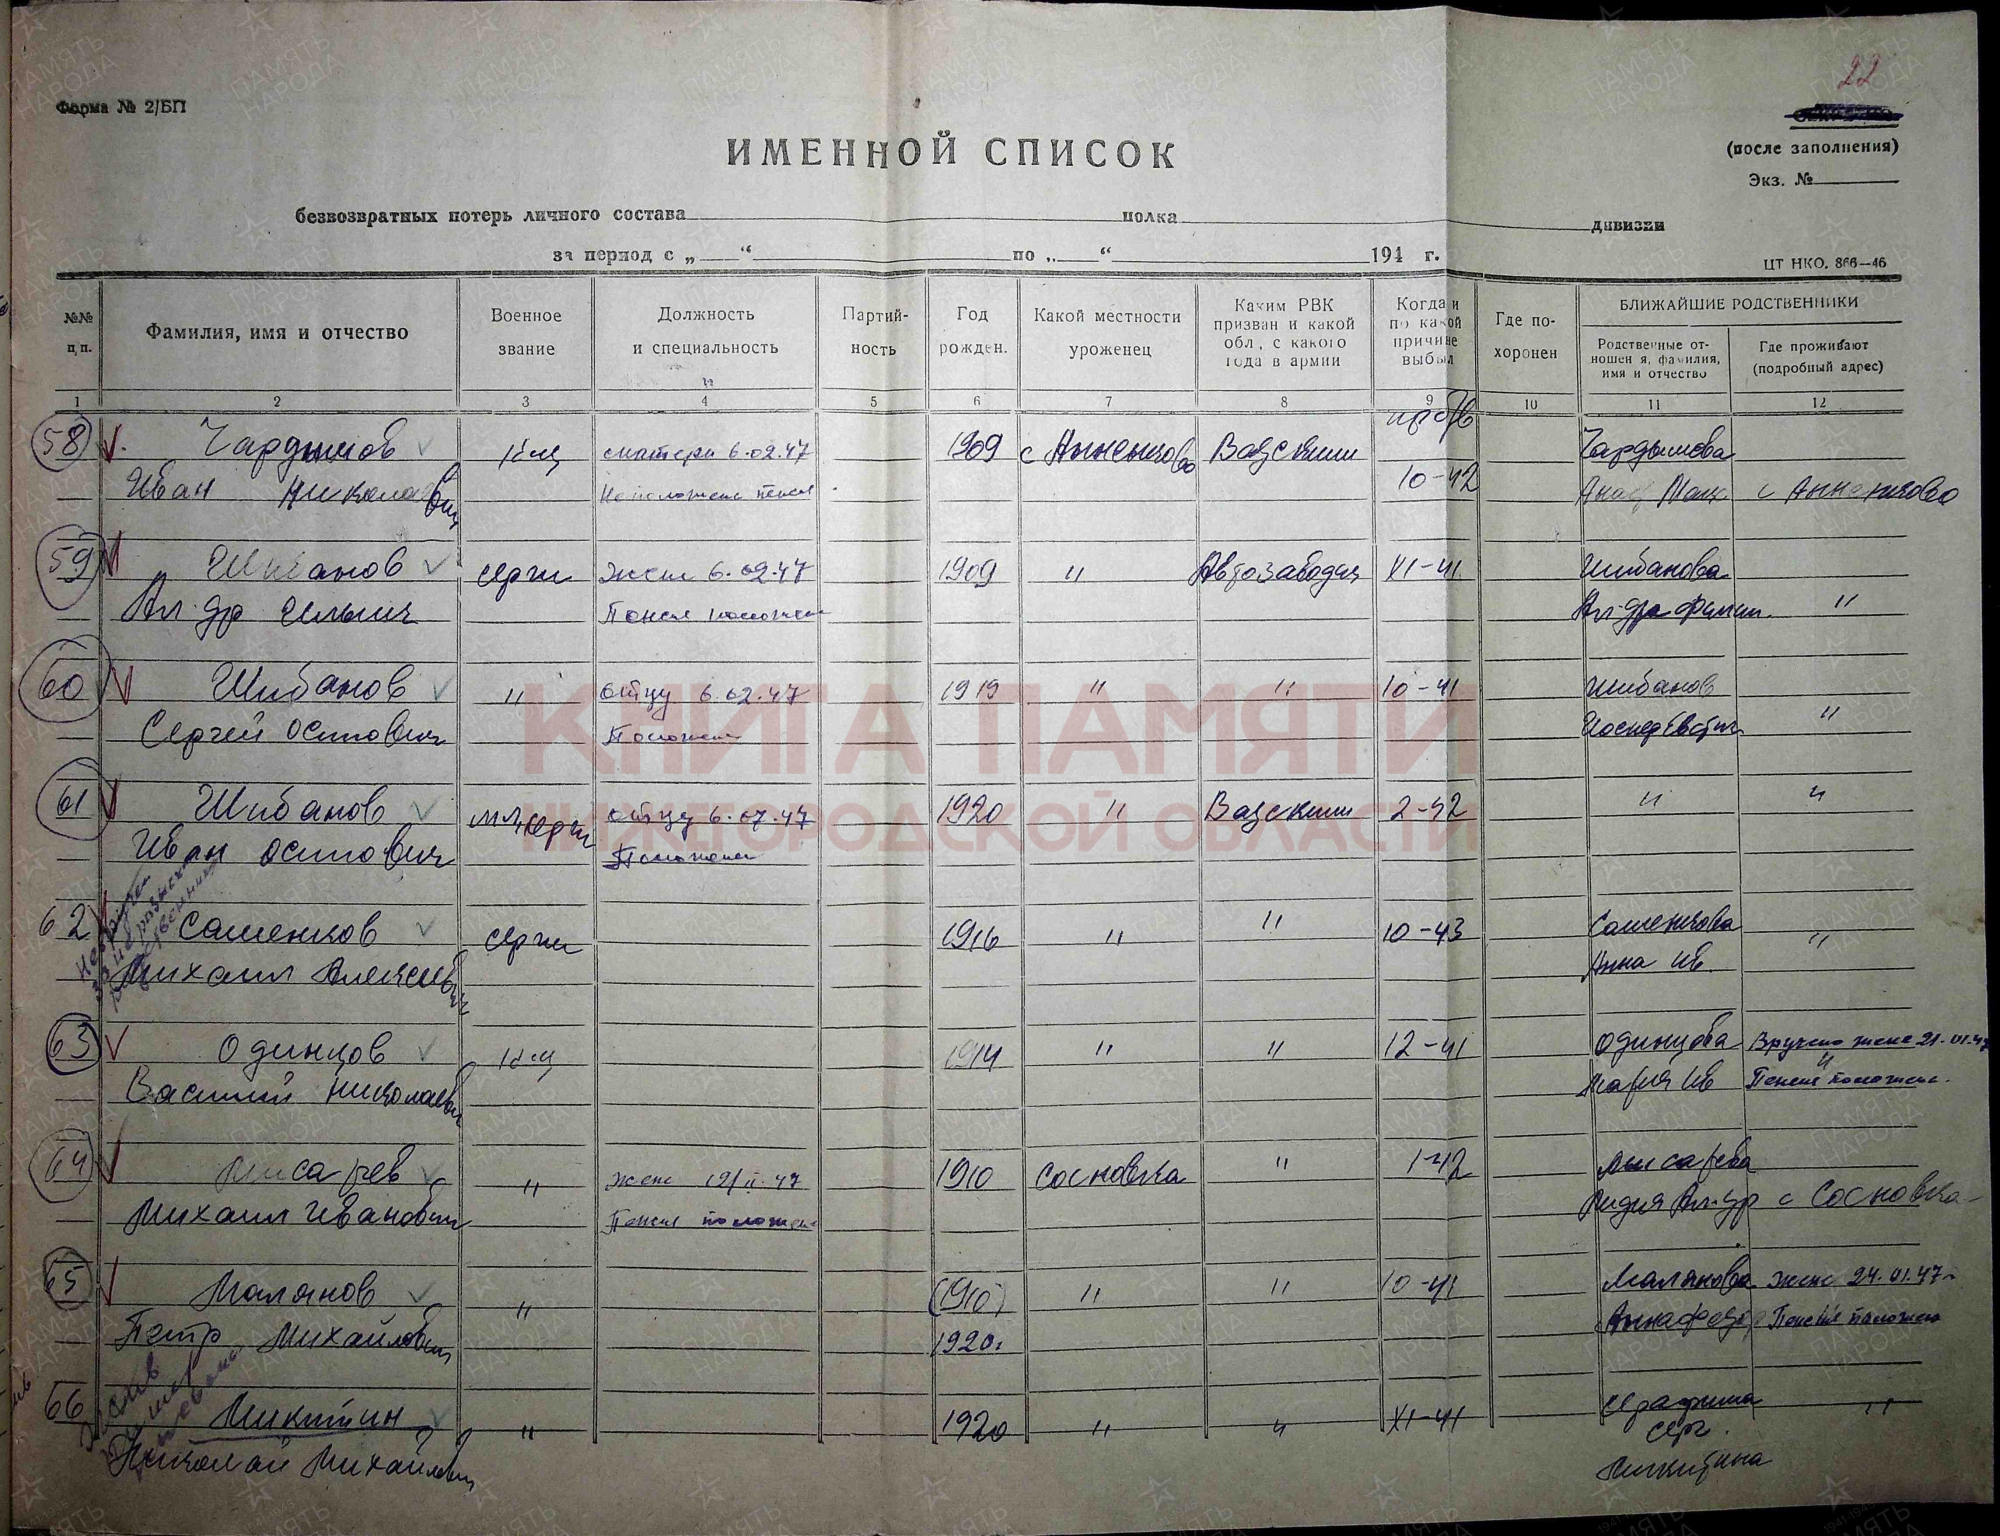 22
Форма № 2/БП
ИМЕННОЙ СПИСОК
(после заполнения)
Экз. №
безвозвратных потерь личного состава полка дивизии
за период с „ “ по „ “ 194 г.
ЦТ НКО. 866—46
№№ п,п.
Фамилия, имя и отчество
Военное звание
Должность и специальность
Партий-ность
Год рожден.
Какой местности уроженец
Каким РВК призван и какой обл, с какого года в армии
Когда и по какой причине выбыл
Где по-хоронен
БЛИЖАЙШИЕ РОДСТВЕННИКИ
Родственные от-ношен я, фамилия, имя и отчество
Где проживают (подробный адрес)
1 2 3 4 5 6 7 8 9 10 11 12
58 Чардымов К-ец матери 6.02.47 1909 с Анненково Вадским пр б/в Чардымова
Иван Николаевич 10-42 с Анненково
59 Шибанов сержи жене 6.02.47 1909 " Автозаводск XI-41 Шибанова
Ал-др Ильич Пенсия положен Ал-дра "
60 Шибанов " отцу 6.02.47 1919 " " 10-41 Шибанов
Сергей Осипович Положен "
61 Шибанов мл, сержи отцу 6.07.47 1920 " Вадским 2-42 " "
Иван Осипович Положен
62 Сашенков сержи 1916 " " 10-43 Сашенкова "
Михаил Алексеевич Анна Ив.
63 Одинцов К-ец 1914 " " 12-41 Одинцова Вручено жене 21.01.47
Василий Николаевич Мария Ив " Пенсия положен.
64 Писарев " жене 12/II-47 1910 Сосновка " 1-42 Писарева
Михаил Иванович Пенсия положен Лидия Ал-др с Сосновка
65 Малянов " (1910) " " 10-41 Малянова жене 24.01.47
Петр Михайлович 1920г Анна Федор Пенсия положен
66 Микитин " 1920 " " XI-41 Серафима "
Николай Михайлович Серг.
Микитина
КНИГА ПАМЯТИ
НИЖЕГОРОДСКОЙ ОБЛАСТИ
ПАМЯТЬ НАРОДА